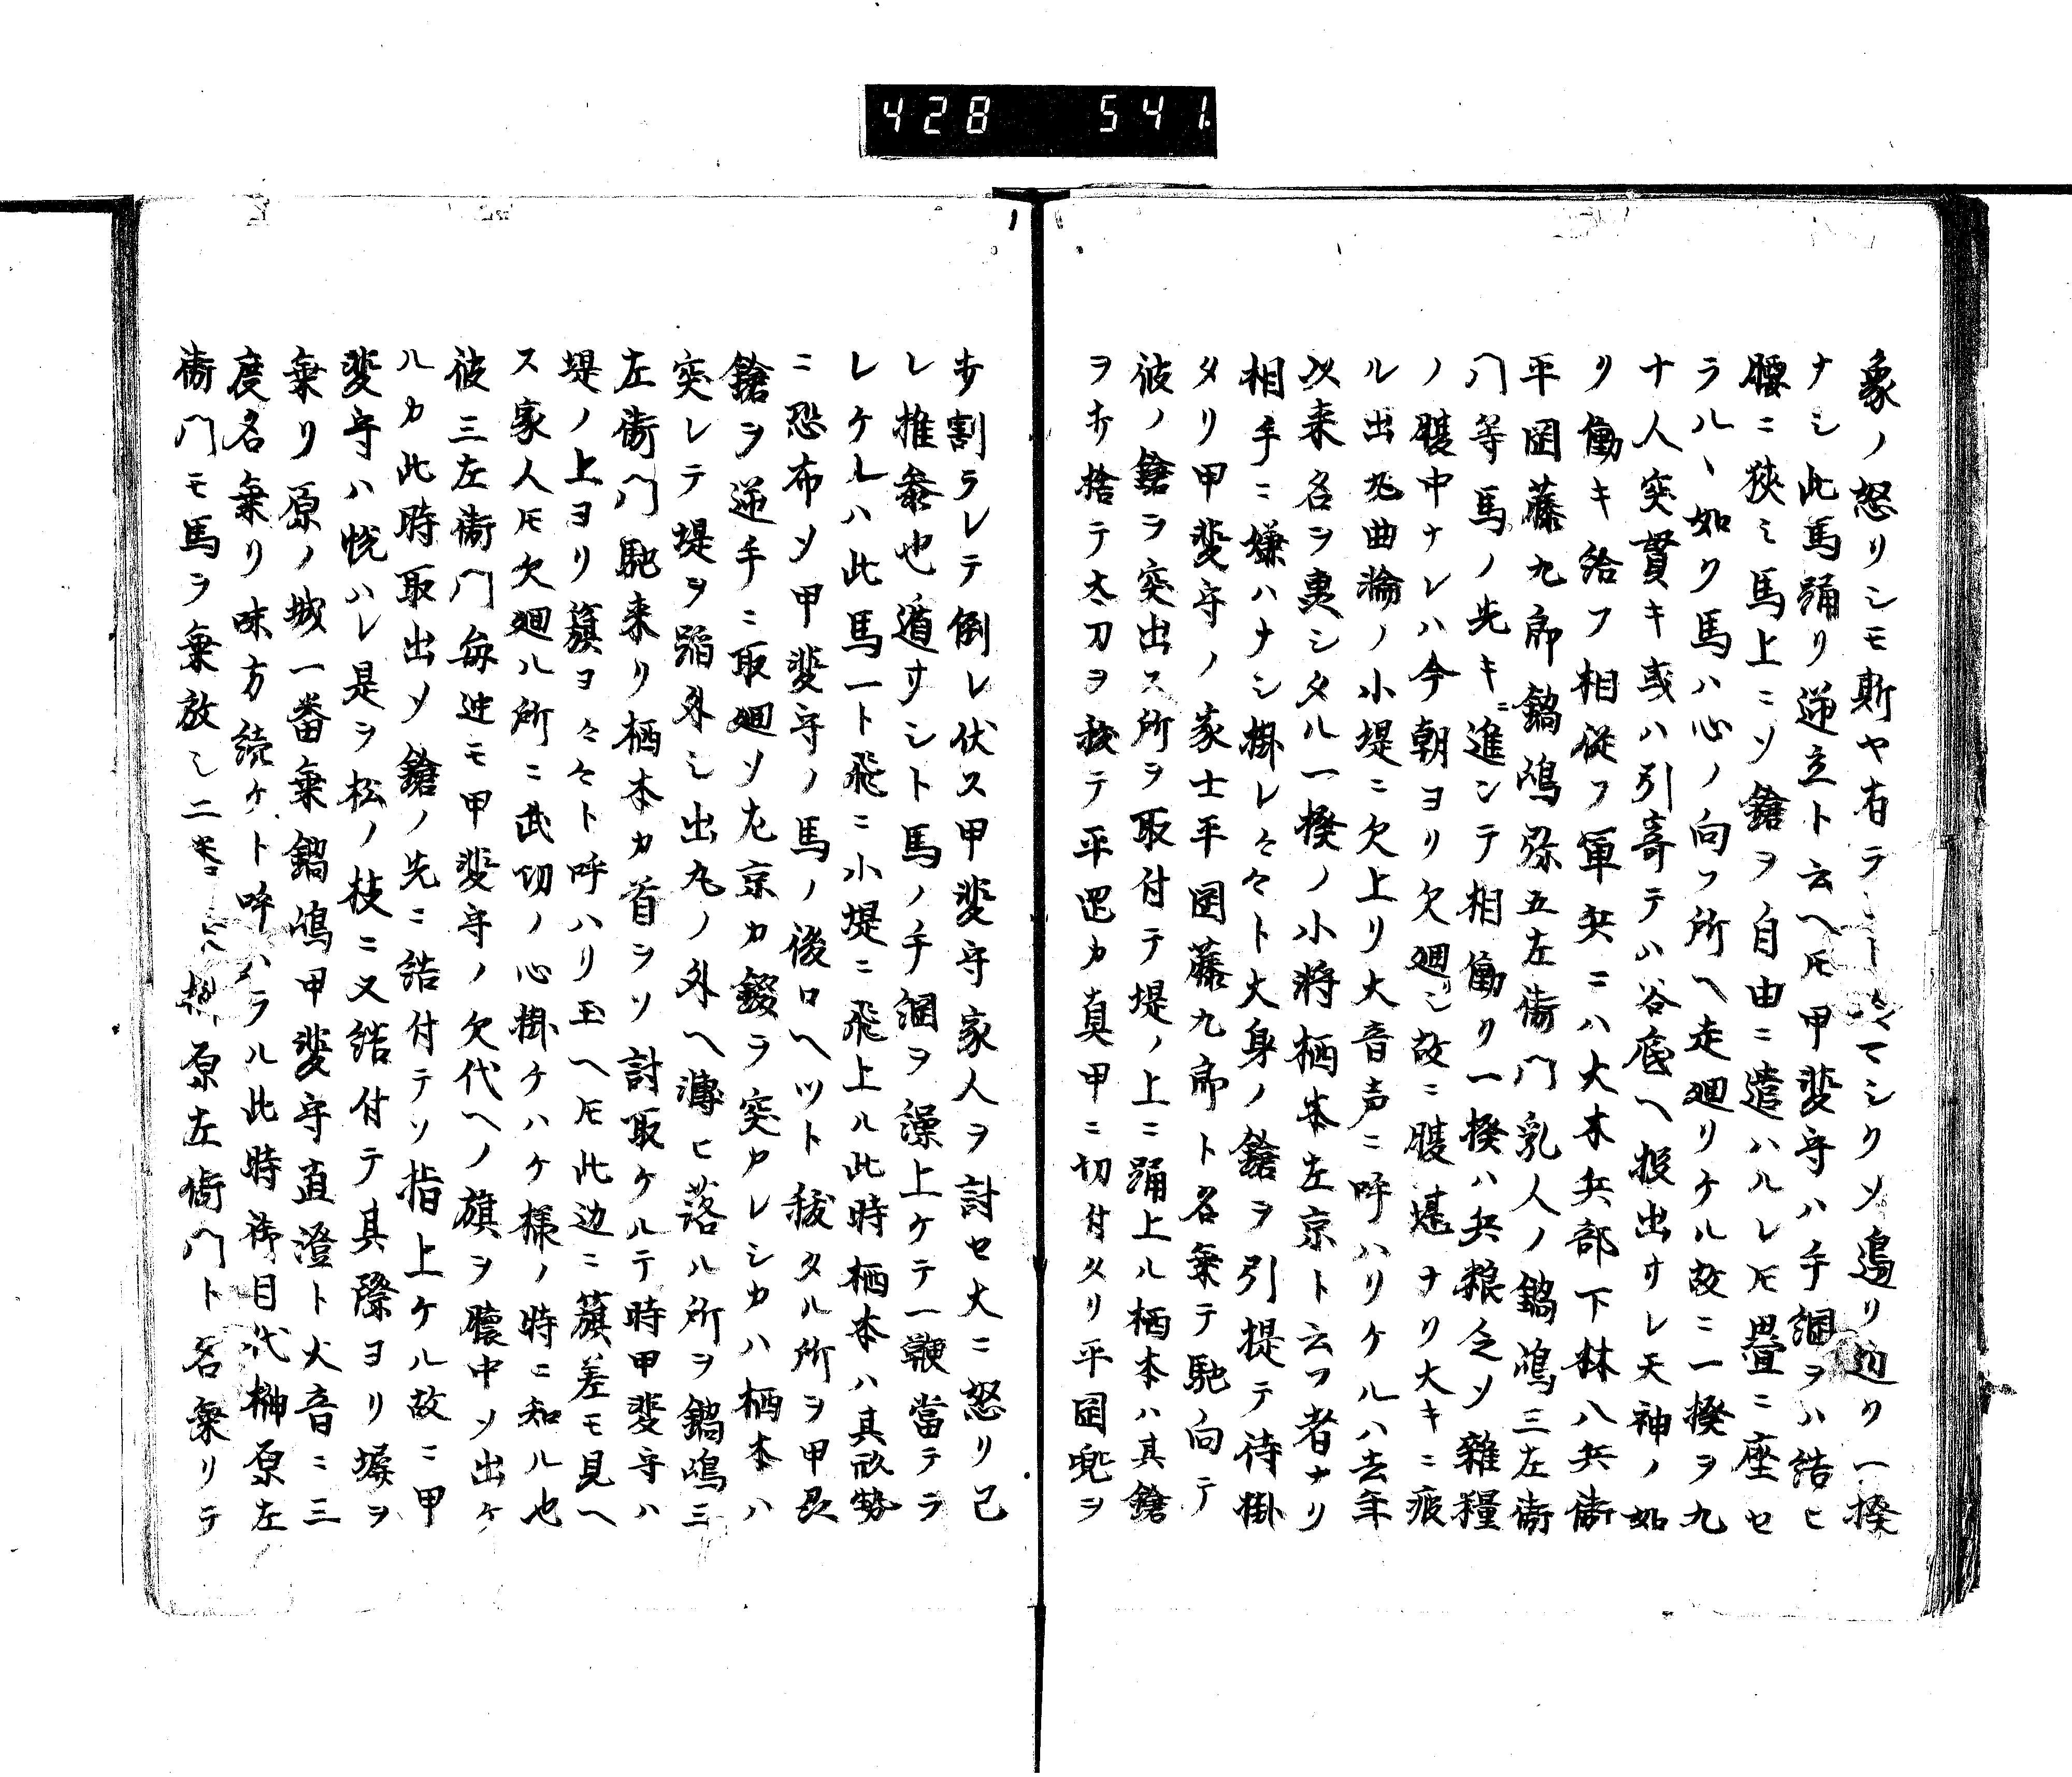 428 541
象ノ怒リシモ斯ヤ有ラ マシクソ邉リ辺ク一揆
ナシ此馬踊リ逆立ト云ヘ𪜈甲斐守ハ手綱ヲハ結ヒ
腰ニ狹ミ馬上ニソ鎗ヲ自由ニ遣ハルレ𪜈畳ニ座セ
ラルヽ如ク馬ハ心ノ向フ所ヘ走廻リケル故ニ一揆ヲ九
十人突貫キ或ハ引寄テハ谷底ヘ投出サレ天神ノ如
リ働キ給フ相従フ軍兵ニハ大木兵部下林八兵衛
平岡藤九郎鍋嶋弥五左衛門乳人ノ鍋嶋三左衛
門等馬ノ先キニ進ンテ相働リ一揆ハ兵粮乏ソ雜糧
ノ膓中ナレハ今朝ヨリ欠廻シ故ニ膓堪ナリ大キニ疲
ル出丸曲淪ノ小堤ニ欠上リ大音声ニ呼ハリケルハ去年
以来名ヲ裏シタル一揆ノ小将栖本左京ト云フ者ナリ
相手ニ嫌ハナシ掛レ々々ト大身ノ鎗ヲ引提テ待掛
タリ甲斐守ノ家士平岡藤九郎ト名乗テ馳向テ
彼ノ鎗ヲ突出ス所ヲ取付テ堤ノ上ニ踊上ル栖本ハ其鎗
ヲ打捨テ太刀ヲ抜テ平岡カ真甲ニ切付タリ平岡兜ヲ
打割ラレテ倒レ伏ス甲斐守家人ヲ討セ大ニ怒リ己
レ推参也遁サシト馬ノ手綱ヲ澡上ケテ一鞭當テラ
レケレハ此馬一ト飛ニ小堤ニ飛上ル此時栖本ハ其㔟
ニ恐布ソ甲斐守ノ馬ノ後ロヘツト抜タル所ヲ甲斐
鎗ヲ逆手ニ取廻ソ左京カ錣ヲ突カレシカハ栖本ハ
突レテ堤ヲ踏外シ出丸ノ外ヘ漂ヒ落ル所ヲ鍋嶋三
左衛門馳来リ栖本カ首ヲソ討取ケルテ時甲斐守ハ
堤ノ上ヨリ籏ヨ々々ト呼ハリ玉ヘ𪜈此辺ニ籏差モ見ヘ
ス家人𪜈欠廻ル所ニ武切ノ心掛ケハケ様ノ時ニ知ル也
彼三左衛門毎迚モ甲斐守ノ欠代ヘノ旗ヲ懐中ソ出ケ
ルカ此時取出ソ鎗ノ先ニ結付テソ指上ケル故ニ甲
斐守ハ悦ハレ是ヲ松ノ枝ニ又結付テ其際ヨリ塀ヲ
乗リ原ノ城一番乗鍋嶋甲斐守直澄ト大音ニ三
度名乗リ味方続ケト呼ハラル此時御目代榊原左
衛門モ馬ヲ乗放シ二番ニ 榊原左衛門ト名乗リテ